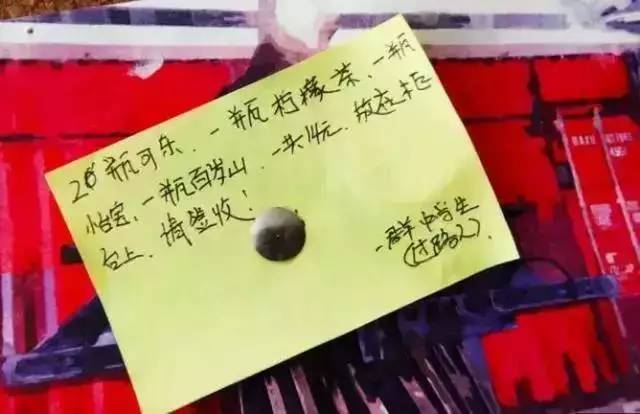 2瓶可乐、一瓶柠檬茶、一瓶
小台宝、一瓶百岁山、一共14元、放在柜
台上、请签收！
一群中学生
(过路人)